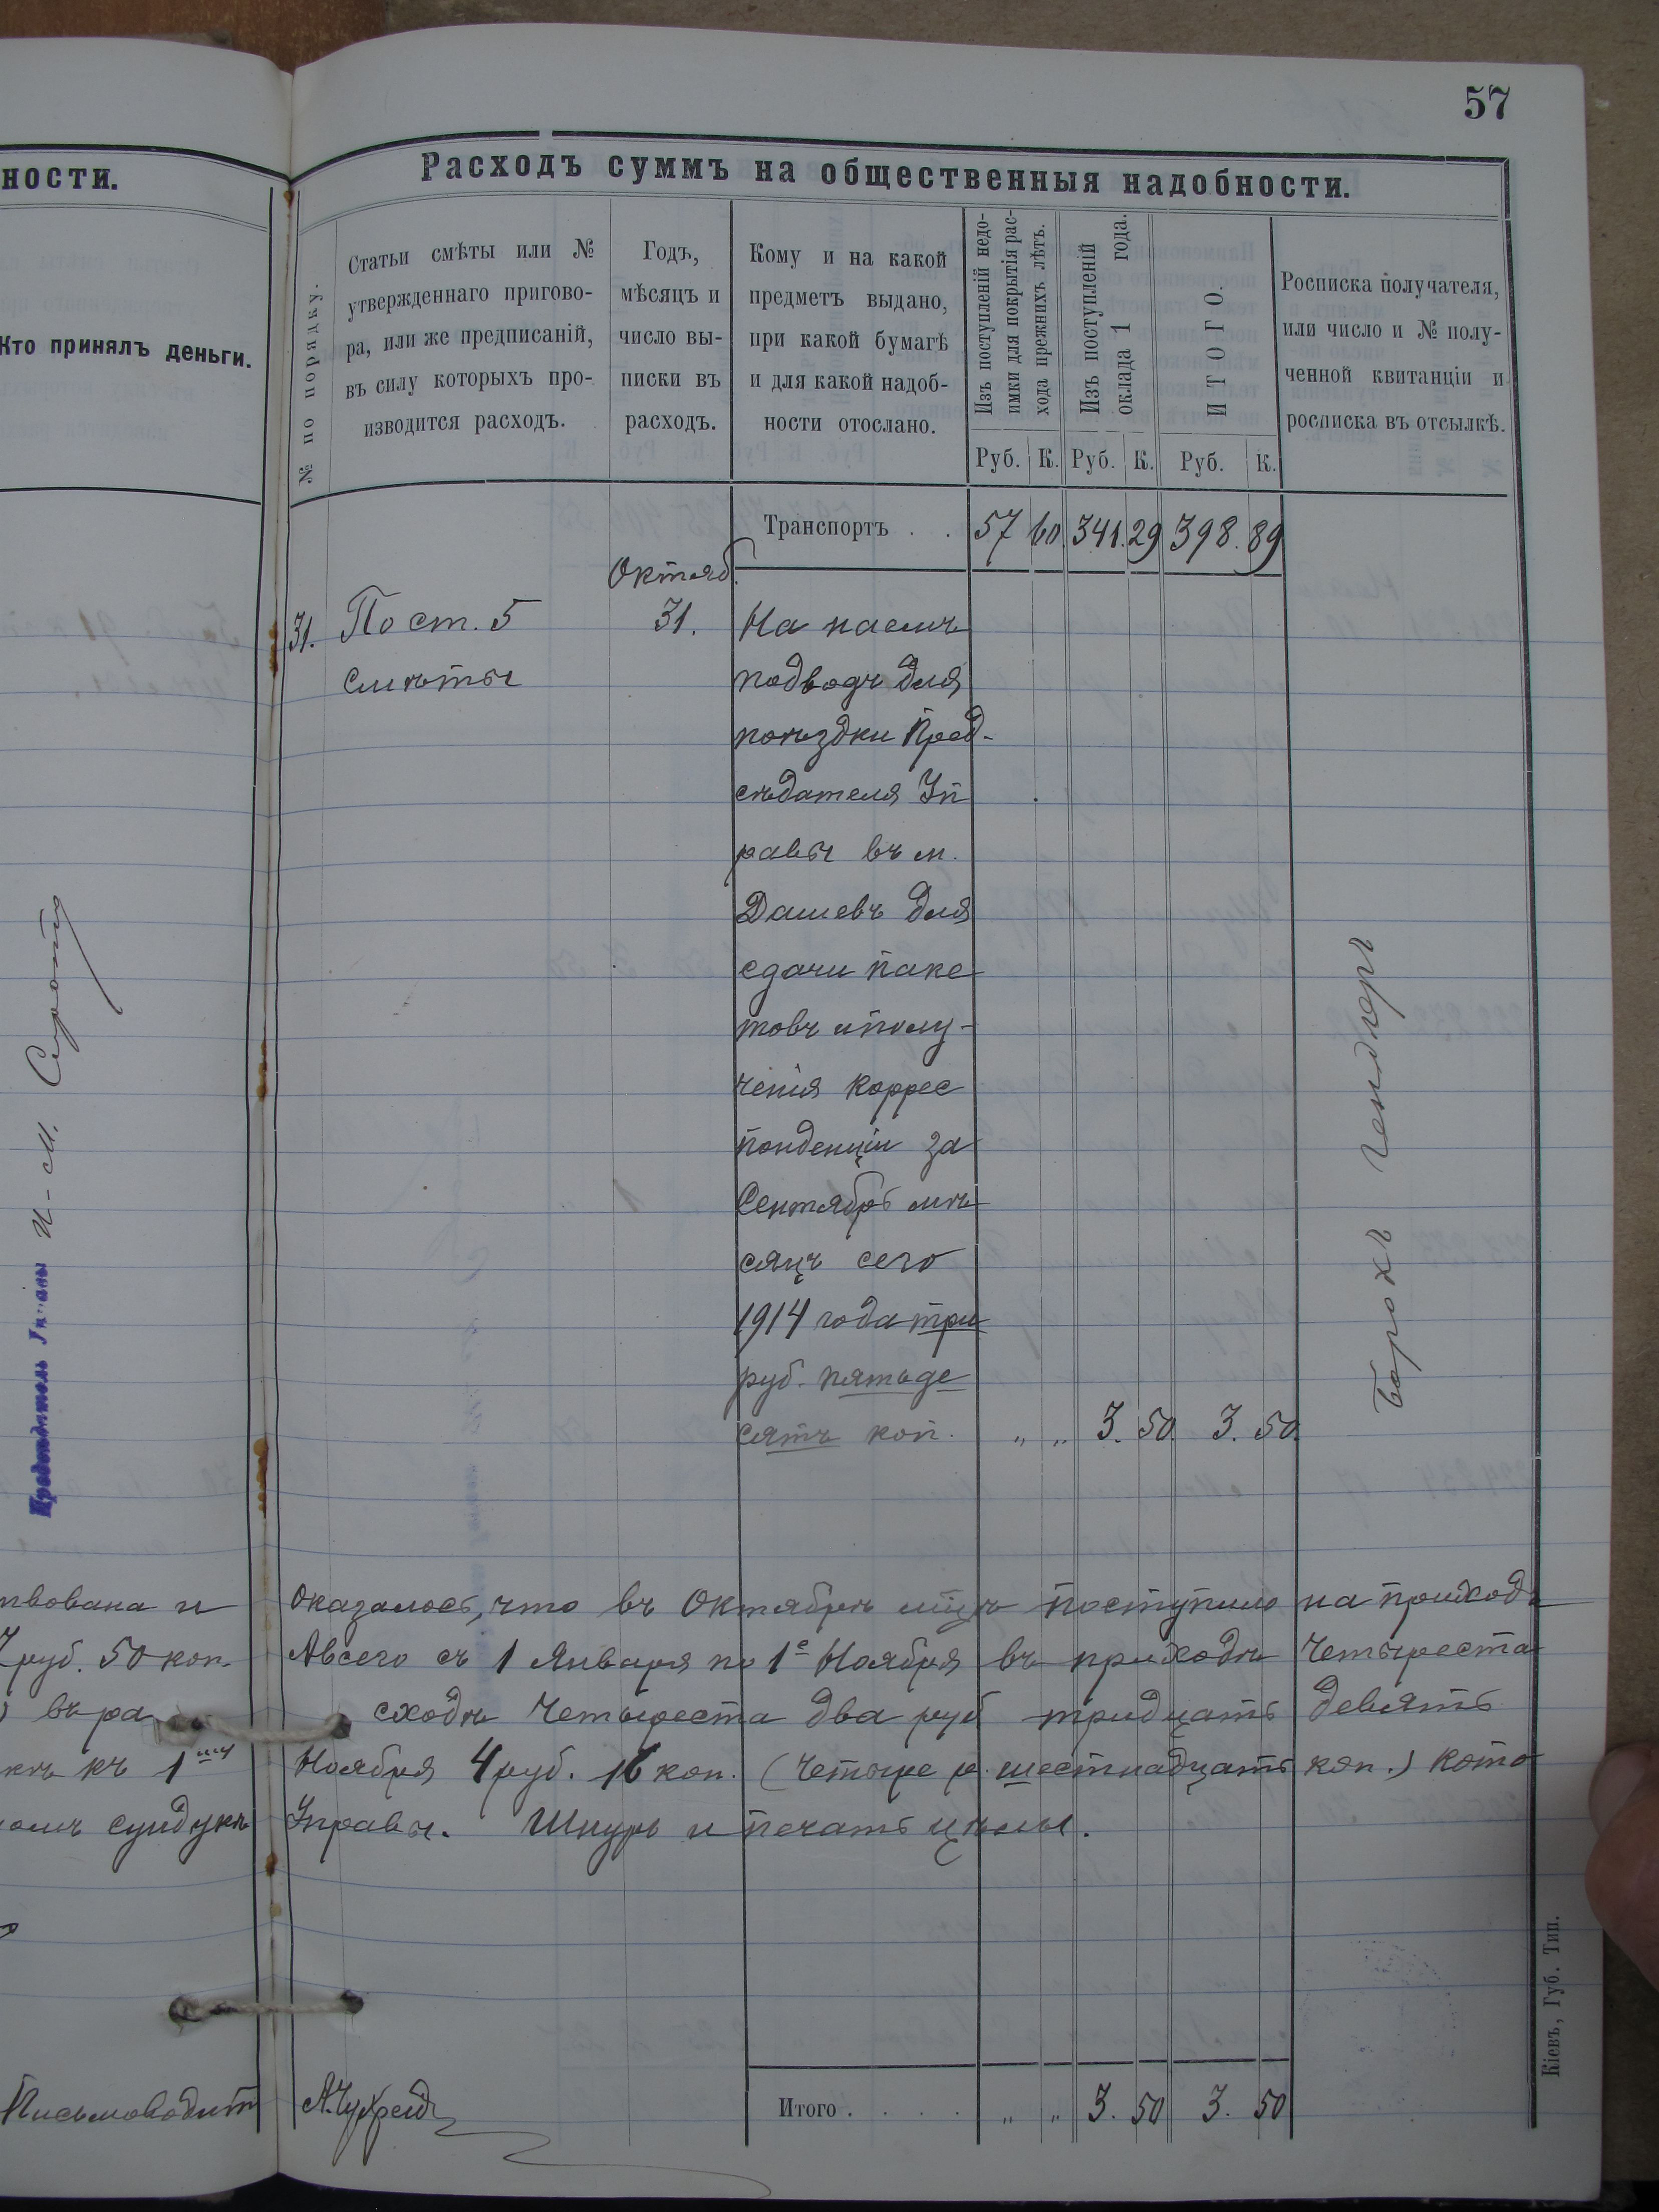 57
ности.
Кто принялъ деньги.
Предсѣдатель Управы И-М. Сирота
твована и
7 руб. 50 коп.
въ ра
къ 1
сундукѣ
Письмоводит
Расходъ суммъ на общественныя надобности.
№ по порядку.
Статьи смѣты или №
утвержденнаго пригово-
ра, или же предписаній,
въ силу которыхъ про-
изводится расходъ.
Годъ,
мѣсяцъ и
число вы-
писки въ
расходъ.
Кому и на какой
предметъ выдано,
при какой бумагѣ
и для какой надоб-
ности отослано.
Изъ поступленій недо-
имки для покрытія рас-
хода прежнихъ лѣтъ.
Изъ поступленій
оклада 1 года.
ИТОГО.
Росписка получателя,
или число и № полу-
ченной квитанціи и
росписка въ отсылкѣ.
Руб. К. Руб. К. Руб. К.
Транспортъ . . 57 60. 341. 29 398. 89
Октяб.
31. По ст. 5 31. На наемъ
смѣты подводъ для
поѣздки Пред-
сѣдателя Уп
равы въ м.
Дашевъ для
сдачи паке
товъ и полу-
ченія коррес
понденціи за
Сентябрь мѣ
сяцъ сего
1914 года три
руб. пятьде
сятъ коп. „ „ 3. 50. 3. 50.
Борохъ Гендлеръ
Оказалось, что въ Октябрѣ мцѣ поступило на приходъ
А всего съ 1 Января по 1е Ноября въ приходѣ Четыреста
сходѣ Четыреста два руб тридцать девять
Ноября 4 руб. 16 коп. (четыре р. шестнадцать коп.) кото
Управы. Шнуръ и печать цѣлы.
Итого . . . . „ „ 3. 50 3. 50
Кіевъ, Губ. Тип.